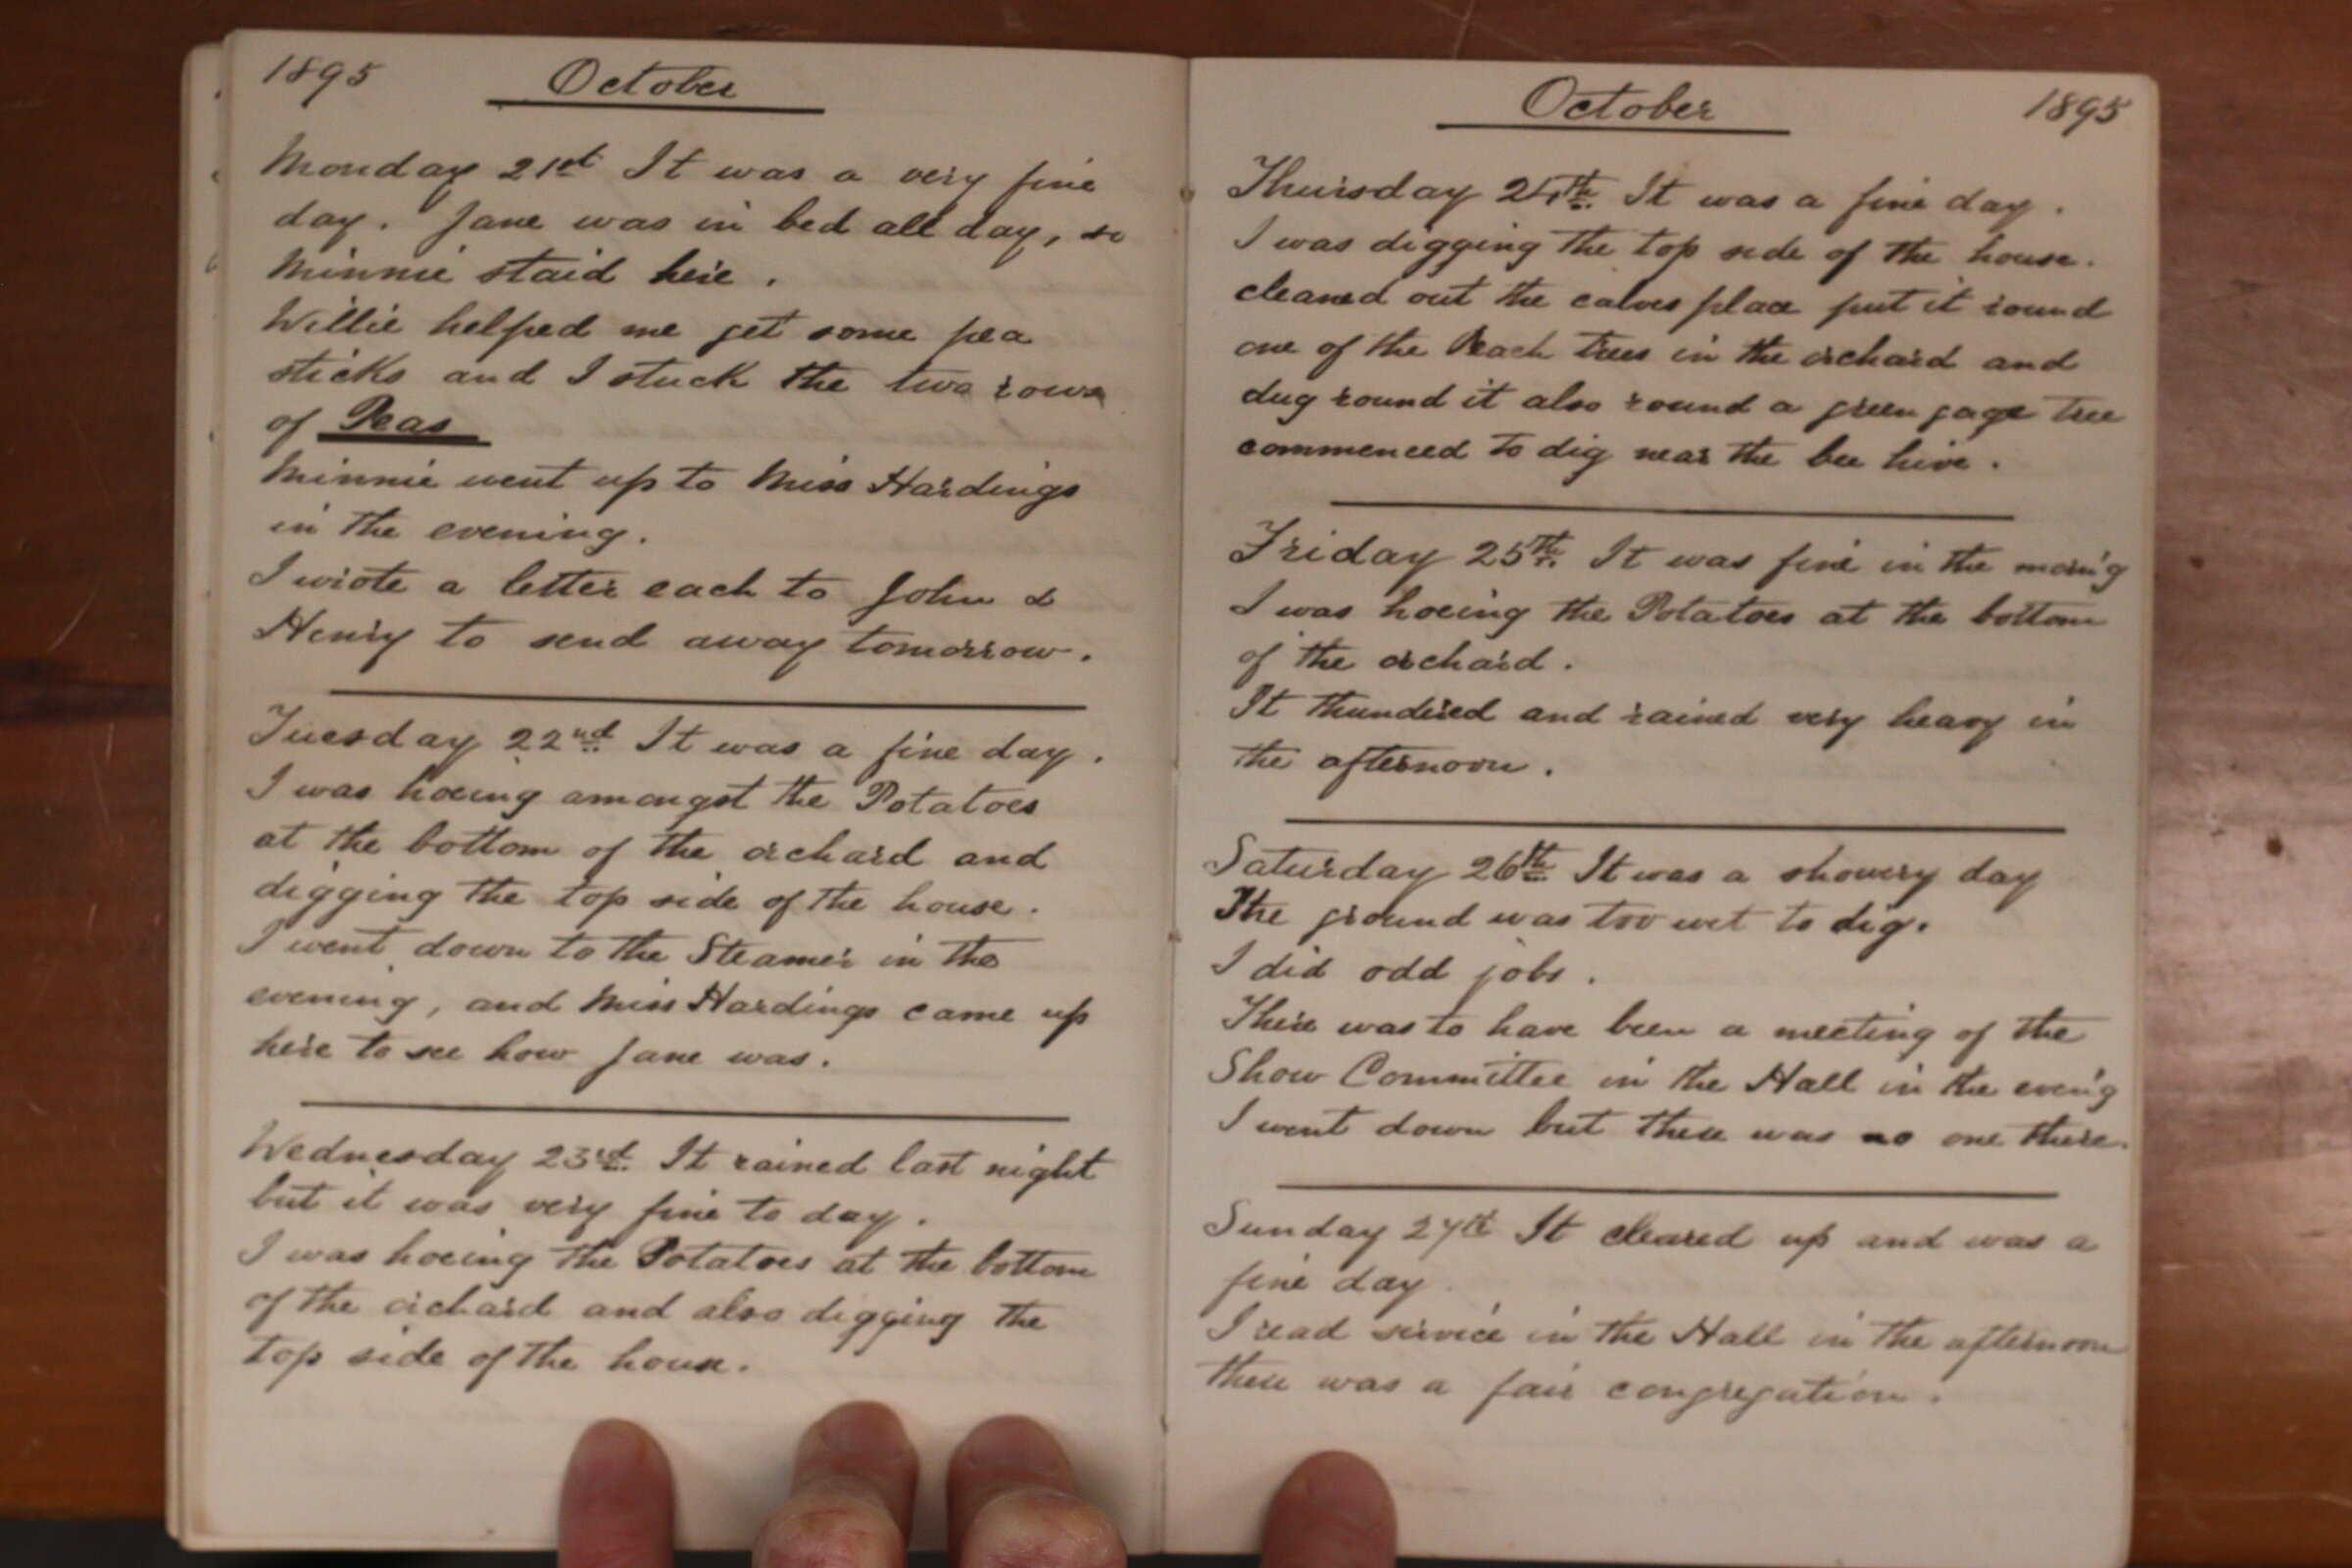 1895 October
Monday 21st It was a very fine
day. Jane was in bed all day, so
Minnie staid here.
Willie helped me get some pea
sticks and I stuck the two rows
of Peas
Minnie went up to Miss Hardings
in the evening.
I wrote a letter each to John &
Henry to send away tomorrow.
Tuesday 22nd It was a fine day.
I was hoeing amongst the Potatoes
at the bottom of the orchard and
digging the top side of the house.
I went down to the Steamer in the
evening, and Miss Hardings came up
here to see how Jane was.
Wednesday 23rd. It rained last night
but it was very fine to day.
I was hoeing the Potatoes at the bottom
of the orchard and also digging the
top side of the house.
October 1895
Thursday 24th. It was a fine day.
I was digging the top side of the house.
cleaned out the calves place put it round
one of the Peach trees in the orchard and
dug round it also round a green gage tree
commenced to dig near the bee hive.
Friday 25th. It was fine in the morn'g
I was hoeing the Potatoes at the bottom
of the orchard.
It thundered and rained very heavy in
the afternoon.
Saturday 26th It was a showery day
The ground was too wet to dig.
I did odd jobs.
There was to have been a meeting of the
Show Committee in the Hall in the even'g
I went down but there was no one there.
Sunday 27th It cleared up and was a
fine day.
I read service in the Hall in the afternoon
there was a fair congregation.